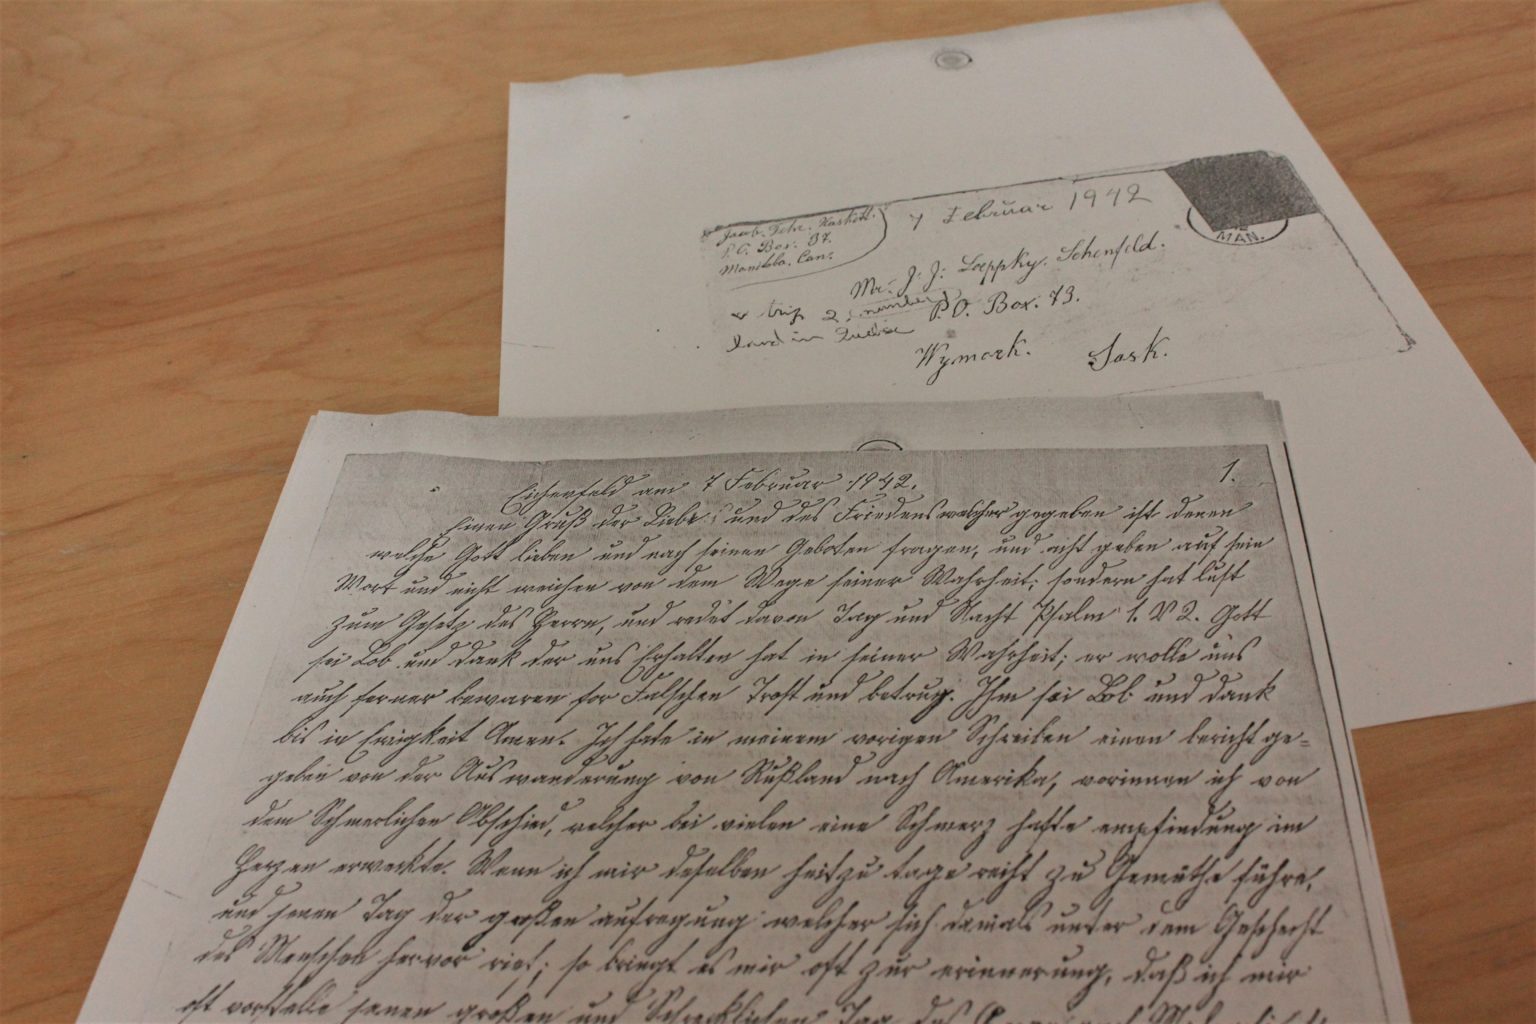 Jacob. Fehr. Haskett.
P.O. Box. 37.
Manitoba. Can.
7 Februar 1942
MAN.
Mr. J. J. Loeppky. Schenfeld.
P.O. Box. 73.
Wymark. Sask.
trip 2.
land in
1.
Eichenfeld am 7 Februar 1942.
Einen Gruß der Liebe und des Friedens welcher gegeben ist denen
welche Gott lieben und nach seinen Geboten fragen, und acht geben auf sein
Wort und nicht weichen von dem Wege seiner Wahrheit; sondern hat lust
zum Gesetz des Herrn, und redet davon Tag und Nacht Psalm 1. V 2. Gott
sei Lob und dank der uns Erhalten hat in seiner Wahrheit; er wolle uns
auch ferner bewaren for Falschen Trost und betrug. Ihm sei Lob und dank
bis in Ewigkeit Amen. Ich habe in meinem vorigen Schreiben einen bericht ge=
geben von der Auswanderung von Rußland nach Amerika, worinnen ich von
dem Schmerlichen Abschied, welcher bei vielen eine Schmerz hafte empfindung im
Herzen erweckte. Wenn ich mir deselben heitzu tage recht zu Gemüthe führe,
und jenen Tag der großen aufregung welcher sich damals unter dem Geschecht
des Menschen hervor rief; so bringt es mir oft zur erinnerung, daß ich mir
oft vorstelle jenen großen und Schrecklichen Tag des